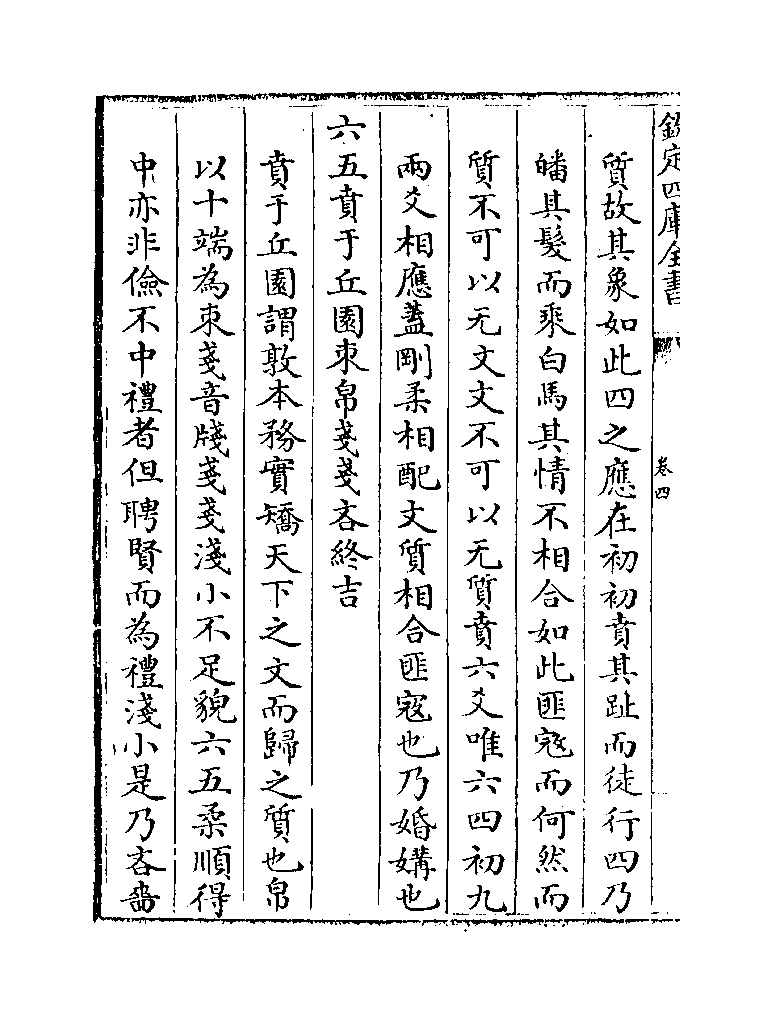 欽定四庫全書
卷四
質故其象如此四之應在初初賁其趾而徒行四乃
皤其髮而乘白馬其情不相合如此匪寇而何然而
質不可以无文文不可以无質賁六爻唯六四初九
兩爻相應蓋剛柔相配文質相合匪寇也乃婚媾也
六五賁于丘園束帛戔戔吝終吉
賁于丘園謂敦本務實矯天下之文而歸之質也帛
以十端為束戔音牋戔戔淺小不足貌六五柔順得
中亦非儉不中禮者但聘賢而為禮淺小是乃吝嗇